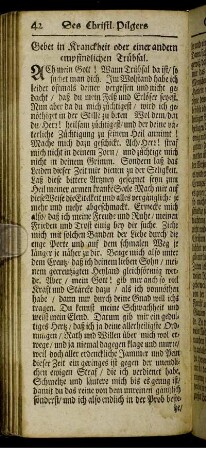 42 Des Christl. Pilgers
Gebet in Kranckheit oder einer andern
empfindlichen Trübsal.
ACh mein Gott! Wann Trübsal da ist/ so
suchet man dich. Im Wohlstand habe ich
leider oftmals deiner vergessen und nicht ge-
dacht/ daß du mein Felß und Erlöser seyest.
Nun aber da du mich züchtigest/ und ich ge-
nöthiget in der Stille zu beten Wol dem/ den
du HErr! heissest züchtigest und der deine vä-
terliche Züchtigung zu seinem Heil annimt!
Mache mich dazu geschickt. Ach HErr! straf
mich nicht in deinem Zorn/ und züchtige mich
nicht in deinem Grimm. Sondern laß das
Leiden dieser Zeit mir dienen zu der Seligkeit.
Laß diese bittere Artzney gesegnet seyn zum
Heil meiner armen krancken Seele Mach mir auf
diese Weise die Eitelkeit und alles vergänglic[he] je
mehr und mehr abgeschmackt. Erwecke mich
also/ daß ich meine Freude und Ruhe/ meinen
Frieden und Trost einig bey dir suche Ziehe
mich mit solchen Banden der Liebe durch die
enge Porte und auf dem schmalen Weg je
länger je näher zu dir. Beuge mich also unter
dem Creutz/ daß ich deinem lieben Sohn/ mei-
nem gecreutzigten Heyland gleichförmig wer-
de. Aber/ mein Gott! gib mir auch so viel
Krafft und Stärcke dazu/ als ich vonnöthen
habe/ dann nur durch deine Gnad will ichs
tragen. Du kennst meine Schwachheit und
weist mein Elend. Darum gib mir ein gedul-
tiges Hertz/ daß ich ja deine allerheiligste Ord-
nungen/ Rath und Willen über mich wol er-
wege/ und ja niemal dagegen klage und murre/
weil doch aller erdenckliche Jammer und Pein
dieser Zeit ein geringes ist gegen der unend-
lichen ewigen Straf/ die ich verdienet habe.
Schmeltze und läutere mich bis es genug ist/
damit du das reine von dem unreinen gäntzlich
sonderst/ und ich also endlich in der Prob beste-
he/